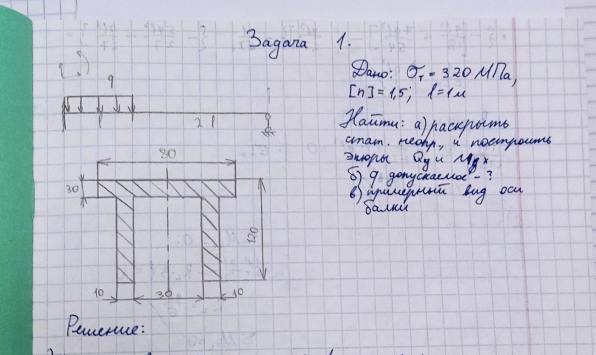 Задача 1.
Дано: σт = 320 МПа,
[n] = 1,5; l = 1м
Найти: а) раскрыть
стат. неопр., и построить
эпюры Qy и Mx
б) q допускаемое - ?
в) примерный вид оси
балки
q
2l
80
30
120
10 30 10
Решение: